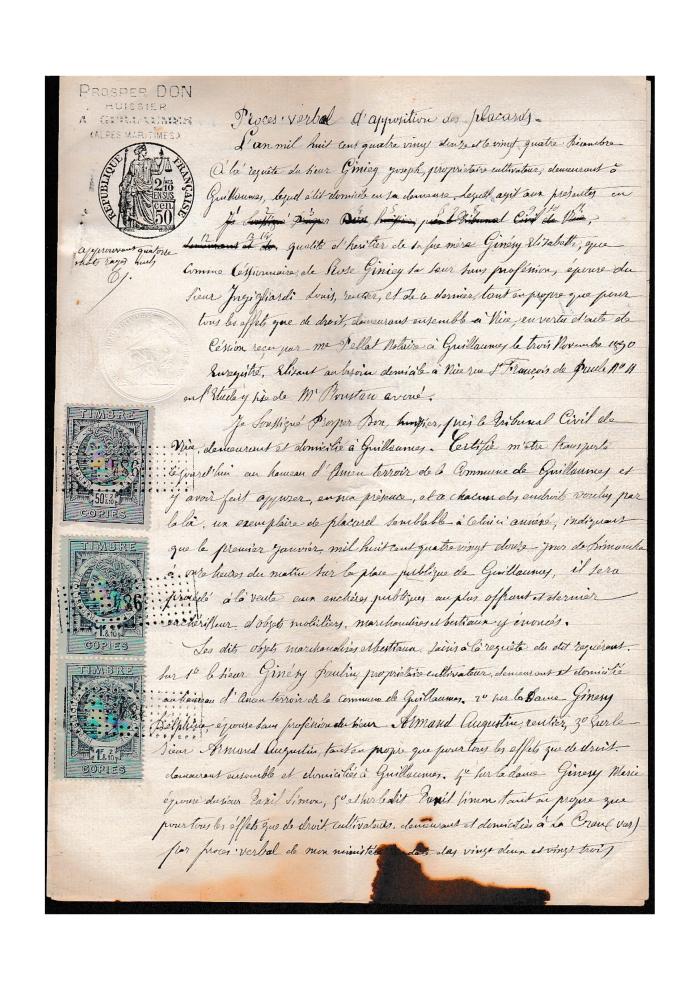 PROSPER DON
HUISSIER
A GUILLAUMES
(ALPES MARITIMES)
RÉPUBLIQUE FRANÇAISE
2/10
EN SUS
50 cen
approuvant quatorze
mots rayés nuls
Procès-verbal d'apposition des placards.
L'an mil huit cent quatre vingt et le vingt quatre Décembre
A la requête du sieur Giniey Joseph, propriétaire cultivateur, demeurant à
Guillaumes, lequel élit domicile en sa demeure, lequel agit aux présentes en
Je soussigné Prosper Don huissier, près le tribunal Civil de Nice,
demeurant et do qualité d'héritier de sa feue mère Giniey Elisabette, que
comme Cessionnaire de Rose Giniey sa sœur sans profession, épouse du
sieur Louis, rentier, et de ce dernier, tant en propre que pour
tous les effets que de droit, demeurant ensemble à Nice, en vertu d'acte de
Cession reçu par me Pellat Notaire à Guillaumes le trois Novembre 1890
Enregistré, Elisant au besoin domicile à Nice rue St François de Paule No 11
en l'Etude de Mr Roustan avoué.
Je Soussigné Prosper Don, huissier, près le Tribunal Civil de
Nice, demeurant et domicilié à Guillaumes. Certifie m'être transporté
cejourd'hui au hameau d'Anen terroir de la Commune de Guillaumes et
y avoir fait apposer, en ma présence, et à chacun des endroits voulus par
la loi, un exemplaire de placard semblable à celui ci annexé, indiquant
que le premier janvier, mil huit cent quatre vingt douze jour de Dimanche
à onze heures du matin sur la place publique de Guillaumes, il sera
procédé à la vente aux enchères publiques au plus offrant et dernier
enchérisseur d'objets mobiliers, marchandises et bestiaux y énoncés.
Les dits objets marchandises et bestiaux, saisis à la requête du dit requérant.
sur 1o le sieur Giniesy Paulin propriétaire cultivateur, demeurant et domicilié
au hameau d'Anen terroir de la commune de Guillaumes. 2o sur la Dame Giniesy
Delphine épouse sans profession du sieur Armand Augustin, rentier, 3o sur le
sieur Armand Augustin, tant en propre que pour tous les effets que de droit.
demeurant ensemble et domiciliés à Guillaumes. 4o sur la dame Giniesy Marie
épouse du sieur Simon, 5o et sur ledit Simon tant en propre que
pour tous les effets que de droit, cultivateurs, demeurant et domiciliés à La Crau (var)
par procès-verbal de mon ministère en date des vingt deux et vingt trois
TIMBRE
987
50c
COPIES
TIMBRE
987
COPIES
TIMBRE
987
COPIES